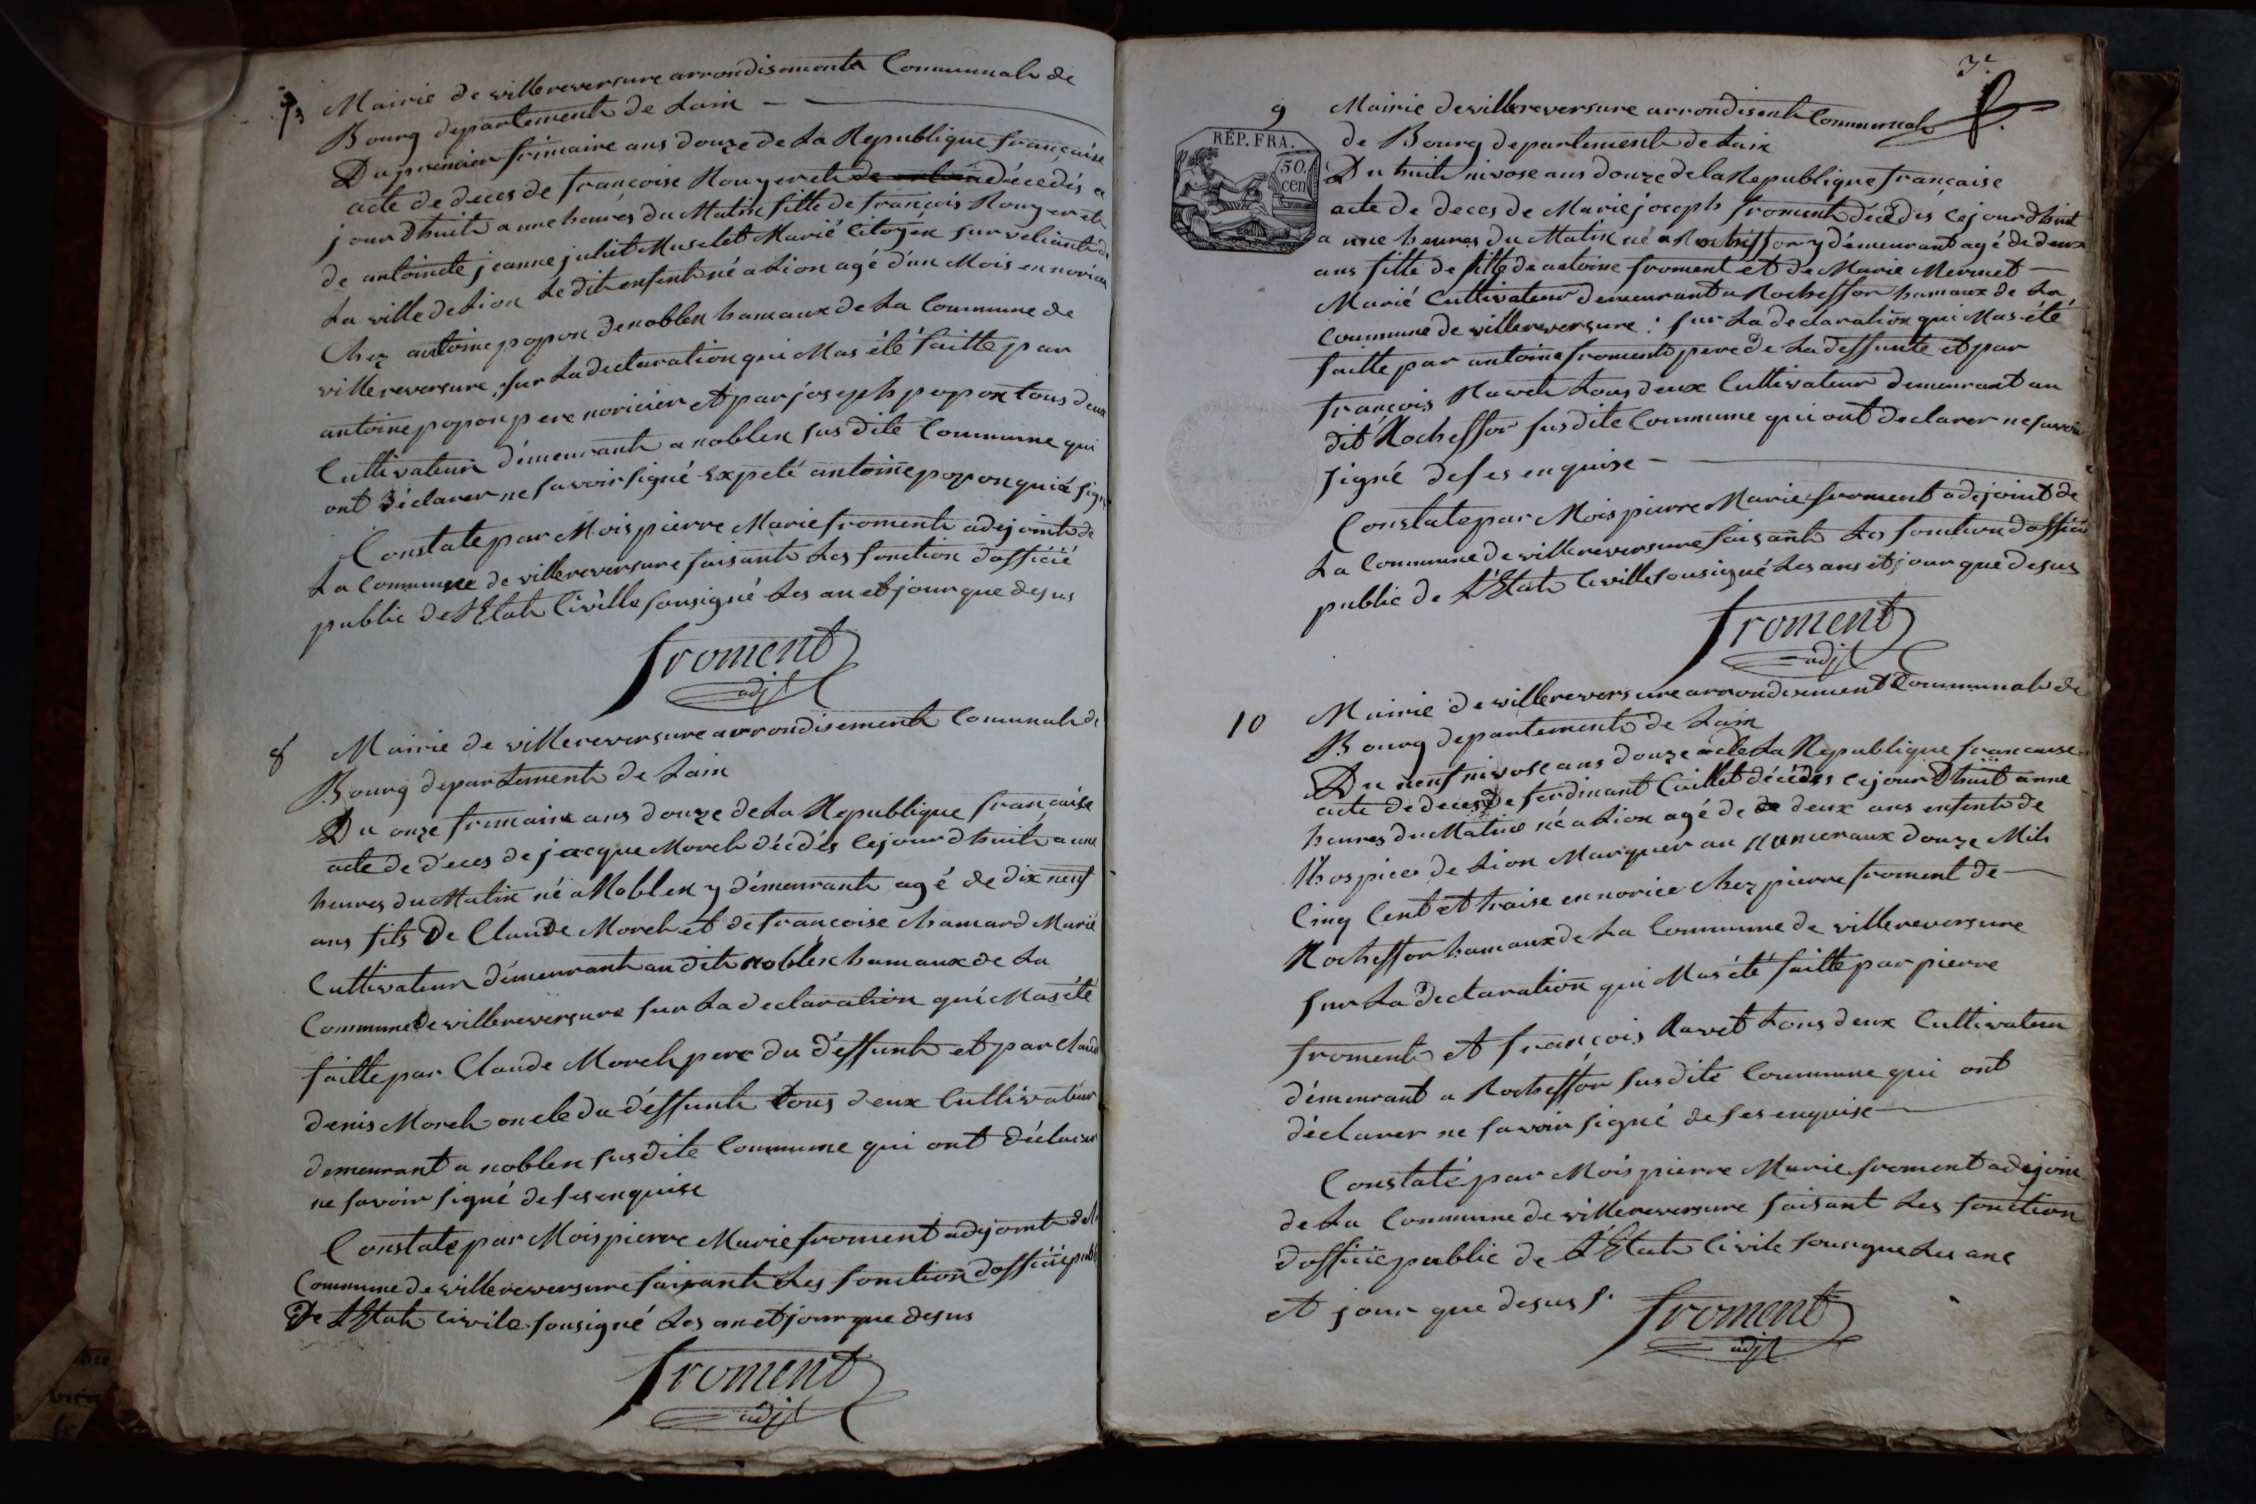 7
Mairie de villereversure arrondisements Communale de
Bourg departement de Lain
Du premier frimaire ans douze de La Republique francaise
acte de deces de francoise Rougeret décedés a
jourdhuit a une heures du Matin fille de francois Rougeret
de antoinete jeanne juliet Muselet Marié Citoyén
La ville de Lion Le dit enfent né a Lion agé dun Mois en noricier
Chez antoine popon de noblen hamaux de La Commune de
villereversure, sur La declaration qui Mas été faitte par
antoine popon pere noricier et par joseph popon tous deux
Cultivateur démeurant a noblen sus dite Commune qui
ont déclarer ne savoir signé Expeté antoine popon qui a signé
Constate par Mois pierre Marie froment adejoint de
La Commune de villereversure faisant Les fonction dofficié
public de L'Etat Civille sousigné Les an et jour que desus
froment
adjt
8
Mairie de villereversure arrondisement Comunale de
Bourg departement de Lain
Du onze frimaire ans douze de La Republique francaise
acte de déces de jacque Morel décédés Cejourdhuit a une
heures du Matin né a Noblen y démeurant agé de dix neuf
ans fils De Claude Morel et de francoise chamard Marié
Cultivateur démeurant au dit noblen hamaux de La
Commune de villereversure sur La declaration qui Mas été
faitte par Claude Morel pere du déffunt et par claude
denis Morel oncle du déffunt tous deux Cultivateur
demeurant a noblen susdite Commune qui ont déclarer
ne savoir signé de ses enquise
Constate par Mois pierre Marie froment adjoint de la
Commune de villereversure faisant Les fonction dofficié public
De LEtat Civile sousigné Les an et jour que desus
froment
adjt
3e
9
REP. FRA.
50.
cen
Mairie de villereversure arrondisent Communal
de Bourg departement de Lain
Du huit nivose ans douze de la Republique francaise
acte de deces de Marie joseph froment décédés Cejourdhuit
a une heures du Matin né a Rocheffor y démeurant agé de deux
ans fille de fille de antoine froment et de Marie Mermet
Marié Cultivateur demeurant a Rocheffor hamaux de La
Commune de villereversure : sur La declaration qui Mas été
faitte par antoine froment pere de La deffunte et par
francois Ravet tous deux Cultivateur demeurant au
dit Rocheffor susdite Commune qui ont declarer ne savoir
signé de ses enquise
Constate par Mois pierre Marie froment adejoint de
La Commune de villereversure faisant Les fonction dofficié
public de L'Etat Civille sousigné Les ans et jour que desus
froment
adjt
10
Mairie de villereversure arrondisement Communale de
Bourg departement de Lain
Du neuf nivose ans douze de La Republique francaise
acte de deces De ferdinant Caillet décédés cejourdhuit a une
heures du Matin né a Lion agé de de deux ans enfent de
Lhospice de Lion Marquer au numeraux douze Mil
Cinq Cent et traise en norice chez pierre froment de
Rocheffor hamaux de La Commune de villereversure
sur La declaration qui Mas été faitte par pierre
froment et francois Ravet tous deux Cultivateur
démeurant a Rocheffor susdite Commune qui ont
déclarer ne savoir signé de ses enquise
Constaté par Mois pierre Marie froment adejoin
de La Commune de villereversure faisant Les fonction
dofficie public de L'Etat Civile sousigne Les ans
et jour que desus s.
froment
adjt